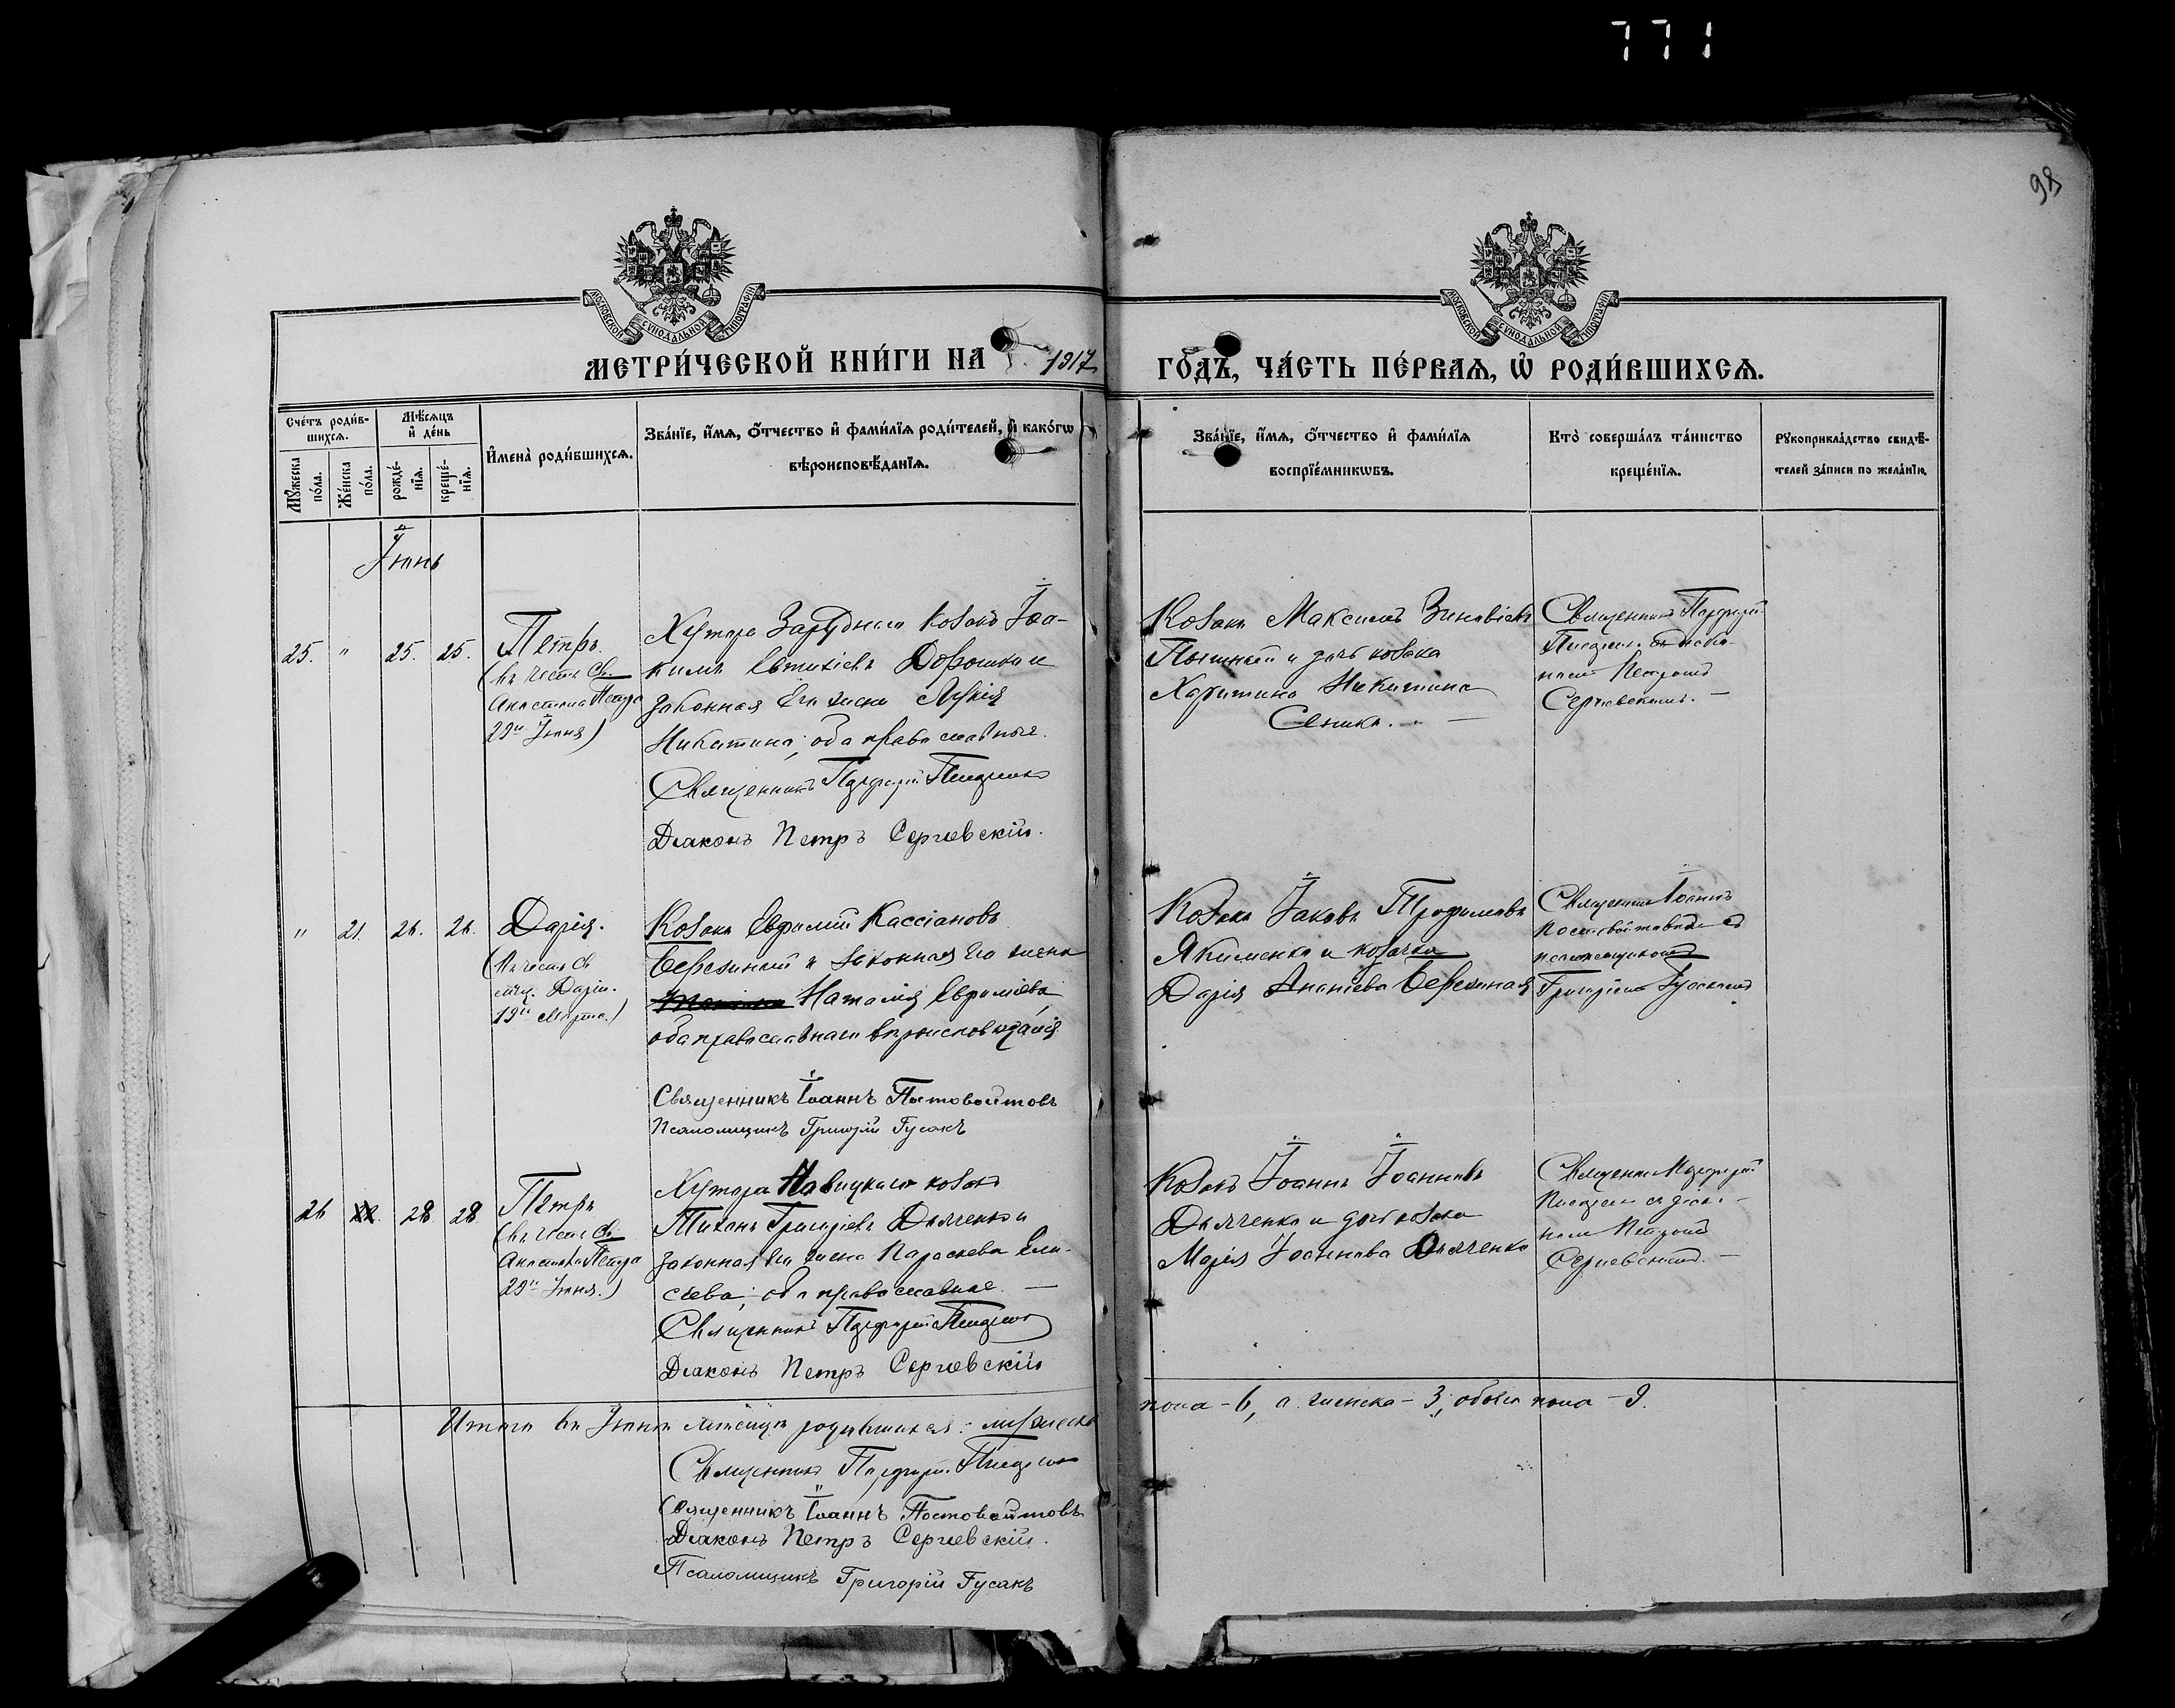 771
98
МОСКОВСКОЙ СѴНОДАЛЬНОЙ ТИПОГРАФІИ
МОСКОВСКОЙ СѴНОДАЛЬНОЙ ТИПОГРАФІИ
МЕТРИ́ЧЕСКОЙ КНИ́ГИ НА 1917
ГО́ДЪ, ЧА́СТЬ ПЕ́РВАѦ, Ѡ҆ РОДИ́ВШИХСѦ.
Сче́тъ роди́в-
шихсѧ.
Мꙋ́жеска
по́ла.
Же́нска
по́ла.
Мѣ́сѧцъ
и҆ де́нь
рожде́-
нїѧ.
креще́-
нїѧ.
И҆мена̀ роди́вшихсѧ.
Зва́нїе, и҆́мѧ, ѻ҆́тчество и҆ фами́лїѧ роди́телей, и҆ како́гѡ
вѣроисповѣ́данїѧ.
Зва́нїе, и҆́мѧ, ѻ҆́тчество и҆ фами́лїѧ
воспрїе́мникѡвъ.
Кто̀ соверша́лъ та́инство
креще́нїѧ.
Рꙋкоприкла́дство свидѣ́-
телей за́писи по жела́нїю.
Іюнь
25. " 25. 25.
Петръ.
(въ честь Св.
Апостола Петра
29го Іюня)
Хутора Заруднаго козакъ Іоа-
кимъ Евтихіевъ Дорошко и
законная его жена Лукія
Никитина, оба православные.
Священникъ Порфирій
Діаконъ Петръ Сергіевскій.
Козакъ Максимъ Зиновіевъ
и дочь козака
Харитина Никитина
Сенько. —
Священникъ Порфирій
съ діако-
номъ Петромъ
Сергіевскимъ. —
" 21. 26. 26.
Дарія.
(Въ честь св
муч. Даріи.
19го Марта.)
Козакъ Евфимій Кассіановъ
Березиный и законная его жена
Наталія Евфиміева,
оба православнаго вѣроисповѣданія
Священникъ Іоаннъ Постовойтовъ
Псаломщикъ Григорій Гусакъ
Козакъ Іаковъ Трофимовъ
Якименко и козачка
Дарія Ананіева Березиная
Священникъ Іоаннъ
Постовойтовъ съ
псаломщикомъ
Григоріемъ Гусакомъ
26 28 28
Петръ
(въ честь Св
Апостола Петра
29го Іюня.)
Хутора Навицкаго козакъ
Тихонъ Григоріевъ Дьяченко и
законная его жена Параскева Ели-
сѣева, оба православные. —
Священникъ Порфирій
Діаконъ Петръ Сергіевскій
Козакъ Іоаннъ Іоанновъ
Дьяченко и дочь козака
Марія Іоаннова Дьяченко
Священникъ Порфирій
съ діако-
номъ Петромъ
Сергіевскимъ. —
Итого въ Іюнѣ мѣсяцѣ родившихся: мужеска пола – 6, а женска – 3, обоего пола – 9.
Священникъ Порфирій
Священникъ Іоаннъ Постовойтовъ
Діаконъ Петръ Сергіевскій.
Псаломщикъ Григорій Гусакъ